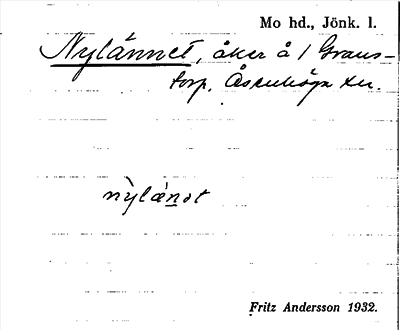 Mo hd., Jönk. l.
Nylánnet, åker å 1 Grans-
torp, Åsenhöga sn.
nỳlánot
Fritz Andersson 1932.